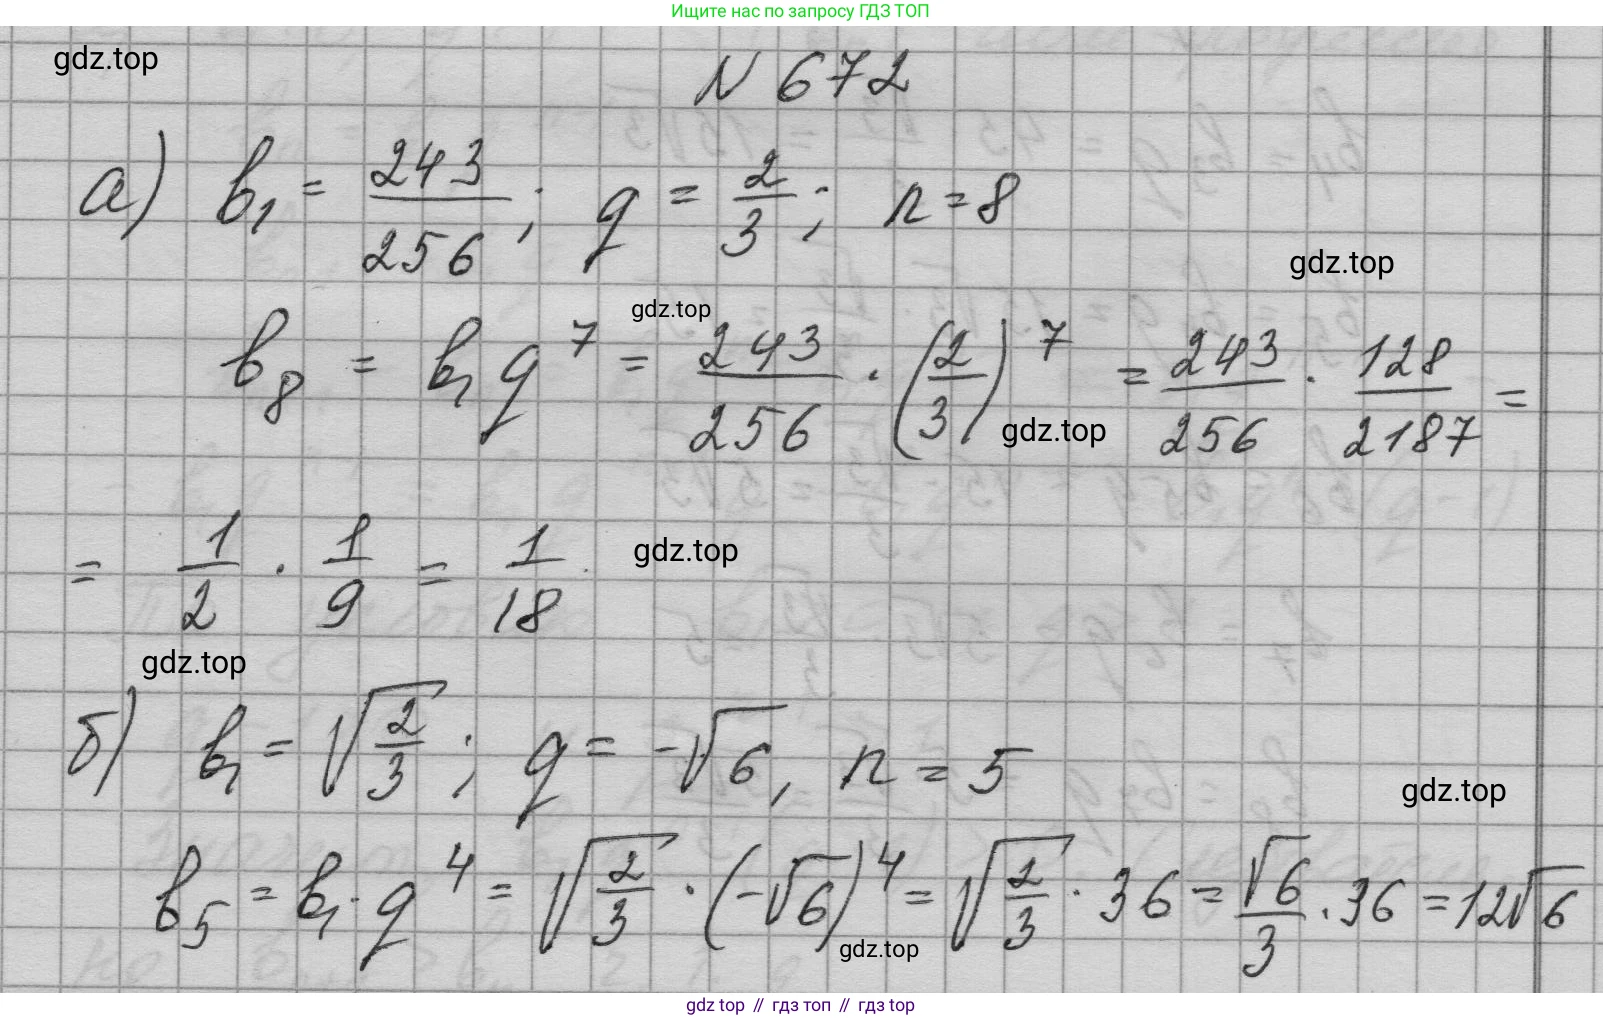 Ищите нас по запросу ГДЗ ТОП
gdz.top
N 672
а) b₁ = 243/256; q = 2/3; n = 8
gdz.top
gdz.top
b₈ = b₁q⁷ = 243/256 · (2/3)⁷ = 243/256 · 128/2187 =
gdz.top
= 1/2 · 1/9 = 1/18
gdz.top
gdz.top
б) b₁ = √(2/3); q = -√6, n = 5
gdz.top
b₅ = b₁ · q⁴ = √(2/3) · (-√6)⁴ = √(2/3) · 36 = √6/3 · 36 = 12√6
gdz.top
gdz top // гдз топ // гдз top